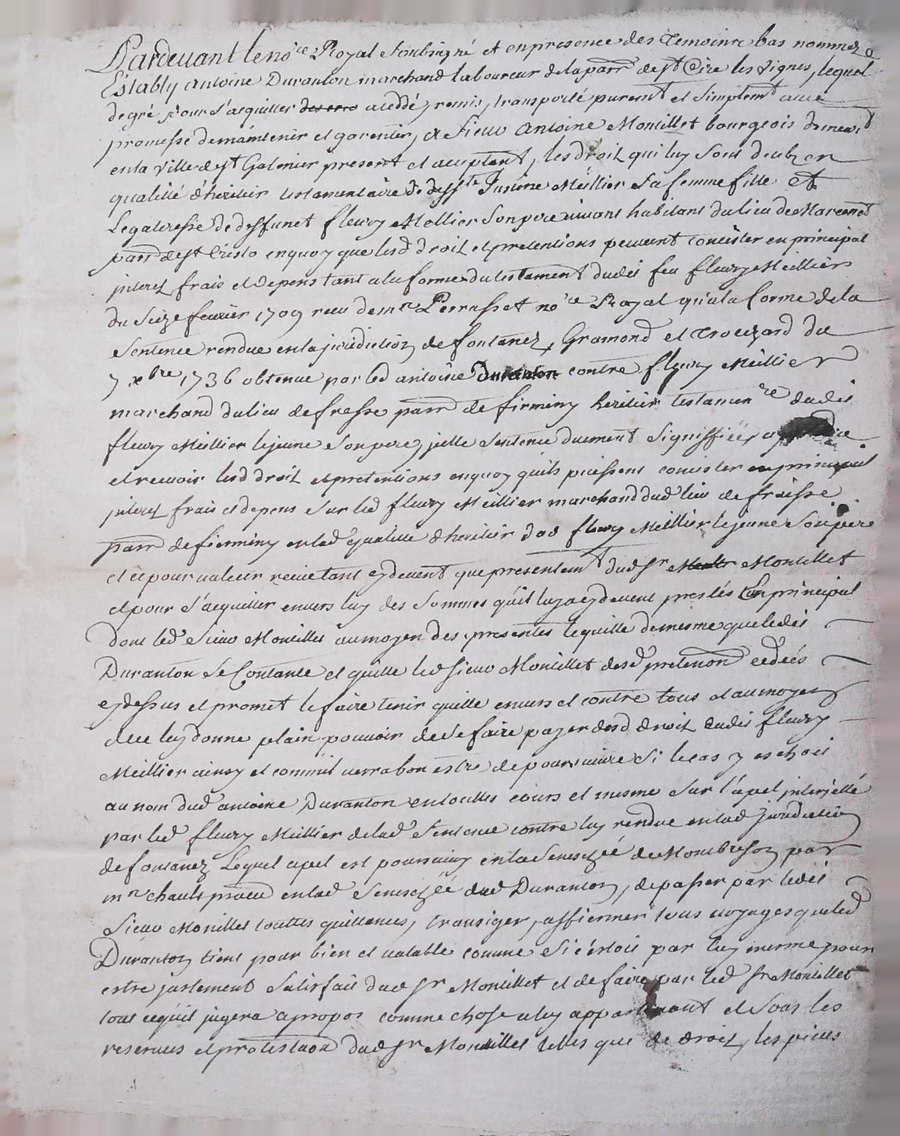 Pardevant le no.re Royal soubsigné et en presence des temoins bas nommez a
Estably antoine Duranton marchand laboureur de la parr de st Cire les vignes, lequel
de gré pour s'aquitter a ceddé, remis, transporté purem.t et simplem.t avec
promesse de maintenir et garentir, a sieur antoine Montillet bourgeois demeur.t
en la ville de st Galmier present et aceptant, les droit qui luy sont deub en
qualité d'heritier testamentaire de deff.te Justine Meillier sa femme fille et
Legateresse de deffunct fleury Mollier son pere vivant habitant du lieu de
parr de st Cristo en quoy que lesd droit et pretentions peuvent concister en principal
jnterest frais et depens tant a la forme du testament dudit feu fleury Meillier
du seize fevrier 1709 receu de m.r Perrusset no.re Royal qu'a la forme de la
sentence rendue en la juridiction de fontanez, Gramond et du
7 xbre 1736 obtenue par led antoine Duranton contre fleury Meillier
marchand du lieu de fresse parr de firminy heritier testamen.re dudit
fleury Meillier le jeune son pere, jcelle sentence duement signiffiée,
et recevoir lesd droit et pretentions en quoy qu'ils puissent concister en principal
jnterest frais et depens sur led fleury Meillier marchand dud lieu de fraisse
parr de firminy en lad qualitté d'heritier dud fleury Meillier le jeune son pere
et ce pour valeur receue tant cydevant que presentem.t dud sr Montillet
et pour s'aquitter envers luy des sommes qu'il luy a cydevent prestés en principal
dont led sieur Montillet au moyen des presentes le quitte de mesme que ledit
Duranton se Contante et quitte led sieur Montillet desd pretention ceddées
cydessus et promet le faire tenir quitte envers et contre tous et au moyen
de ce luy donne plain pouvoir de se faire payer desd droit dudit fleury
Meillier ainsy et comm'il verra bon estre de poursuivre si le cas y eschoit
au nom dud antoine Duranton en touttes cours et mesme sur l'apel jnterjetté
par led fleury Meillier de lad sentence contre luy rendue en lad juridiction
de fontanez Lequel apel est poursuivy en la senesch.ée de Montbrison par
m.r chauls en lad senesch.ée dud Duranton, de passer par ledit
sieur Montillet touttes quittances, transiger, affirmer tous voyages que led
Duranton tient pour bien et valable comme si c'étoit par luy mesme pour
estre justement satisfait dud sr Montillet et de faire par led sr Montillet
tout ce qu'il jugera apropos comme chose a luy appartenant et sous les
reserves et protestaon dud sr Montillet telles que de droit, les pieces